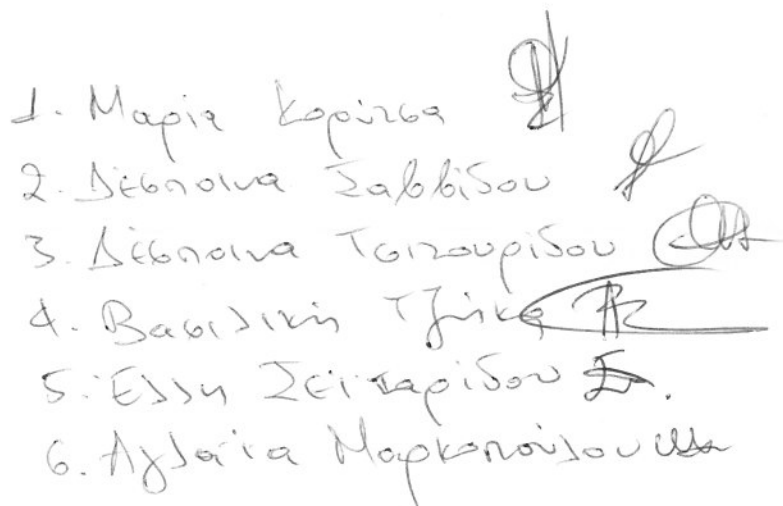 1. Μαρία Κορίτσα
2. Δέσποινα Σαββίδου
3. Δέσποινα Τσιτουρίδου
4. Βασιλική Τζήκα
5. Έλλη Σεϊταρίδου
6. Αγλαΐα Μαρκοπούλου